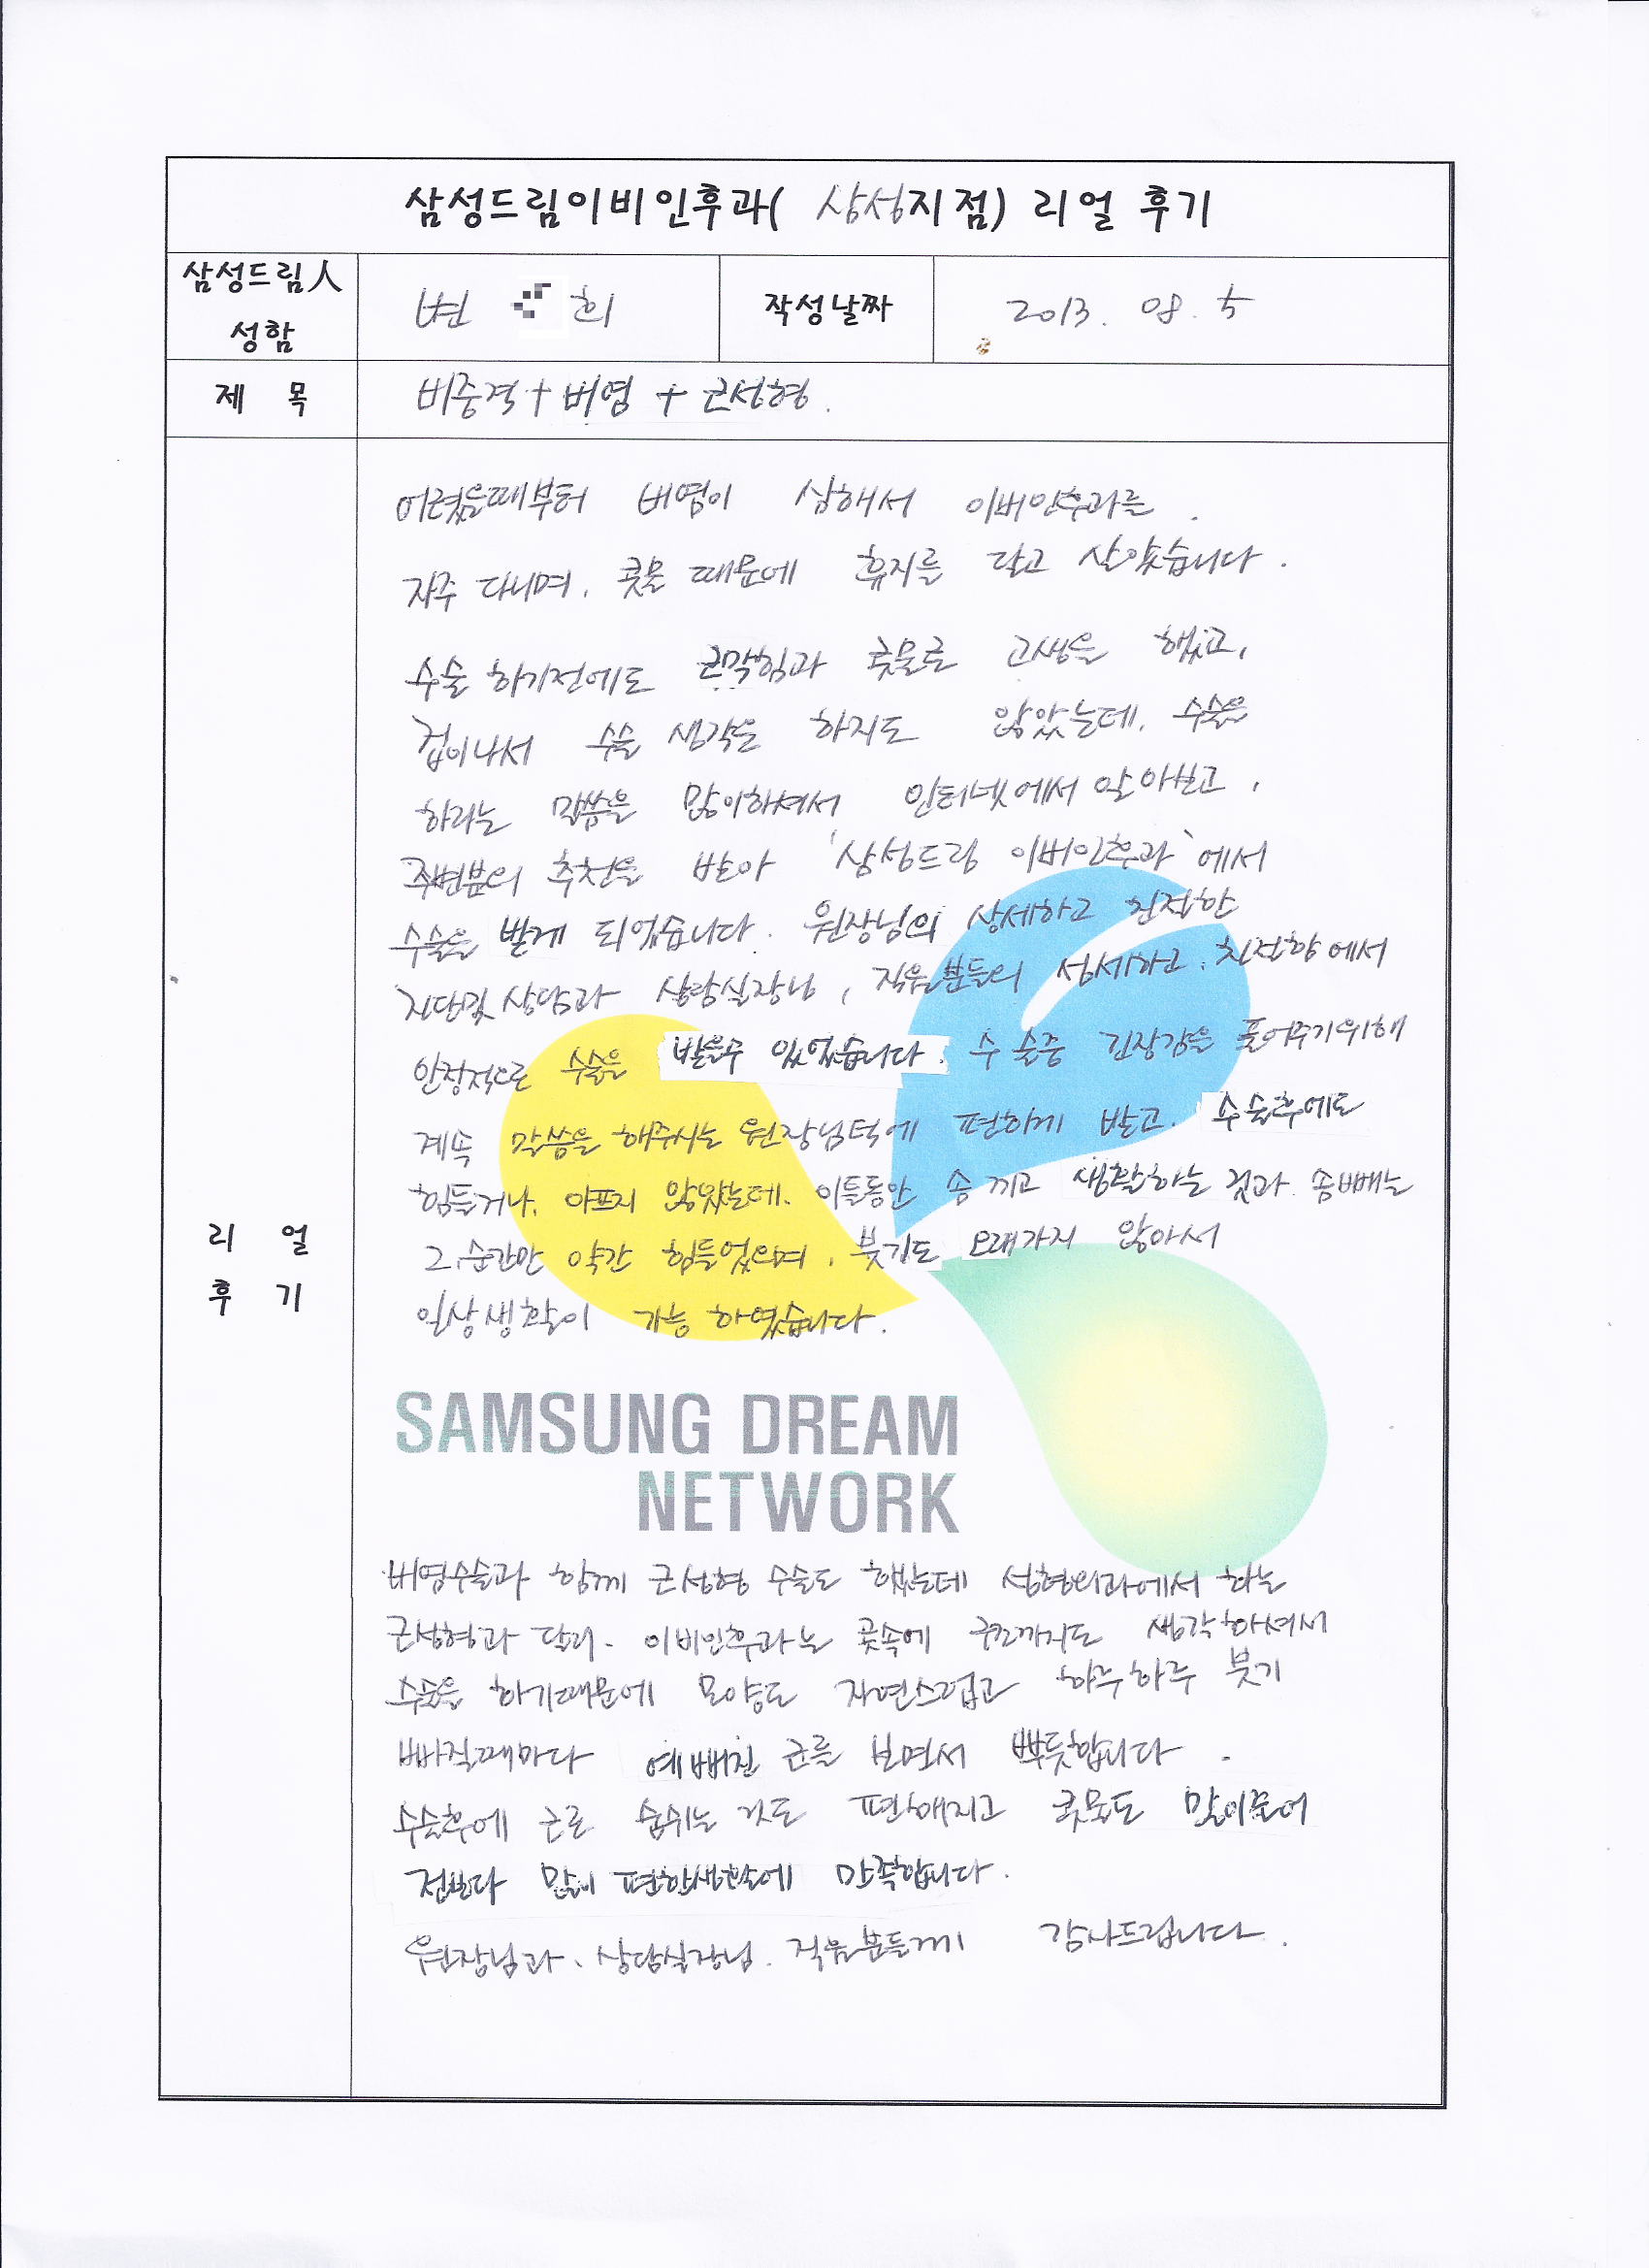 삼성드림이비인후과( 삼성지점) 리얼 후기
삼성드림人
성함
변 희
작성날짜
2013. 08. 5
제 목
비중격 + 비염 + 코성형.
어렸을때부터 비염이 심해서 이비인후과를
자주 다니며, 콧물 때문에 휴지를 달고 살았습니다.
수술 하기전에도 코막힘과 콧물로 고생을 했고,
겁이나서 수술 생각을 하지도 않았는데, 수술을
하라는 말씀을 많이하셔서 인터넷에서 알아보고,
주변분의 추천을 받아 '삼성드림 이비인후과'에서
수술을 받게 되었습니다. 원장님의 상세하고 친절한
진단및 상담과 상담실장님, 직원분들의 섬세하고, 친절함에서
안정적으로 수술을 받을수 있었습니다. 수술중 긴장감을 풀어주기위해
계속 말씀을 해주시는 원장님턱에 편하게 받고, 수술후에도
힘들거나, 아프지 않았는데, 이틀동안 솜 끼고 생활하는 것과 솜빼는
그 순간만 약간 힘들었으며, 붓기도 오래가지 않아서
일상생활이 가능 하였습니다.
SAMSUNG DREAM
NETWORK
비염수술과 함께 코성형 수술도 했는데 성형외과에서 하는
코성형과 달리, 이비인후과는 콧속에 구조까지도 생각하셔서
수술을 하기때문에 모양도 자연스럽고 하루하루 붓기
빠질때마다 예뻐진 코를 보면서 뿌듯합니다.
수술후에 코로 숨쉬는 것도 편해지고 콧물도 많이줄어
전보다 많이 편한생활에 만족합니다.
원장님과, 상담실장님, 직원분들께 감사드립니다.
리 얼
후 기